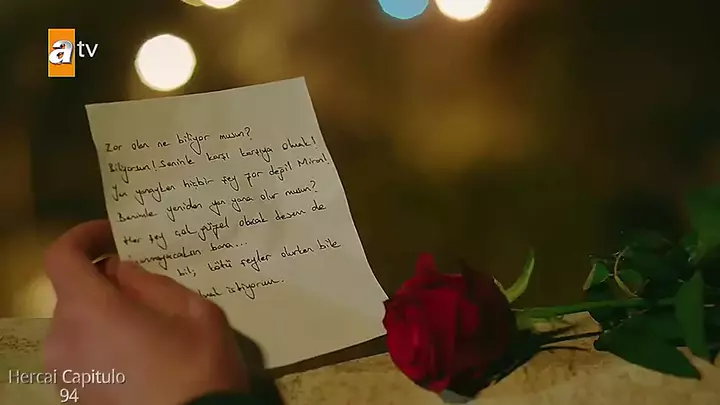 atv
Zor olan ne biliyor musun?
Biliyorsun! Seninle karşı karşıya olmak!
Yan yanayken hiçbir şey zor değil Miran!
Benimle yeniden yan yana olur musun?
Her şey çok güzel olacak desem de
inanmayacaksın bana...
bil, kötü şeyler olurken bile
istiyorum.
Hercai Capitulo
94